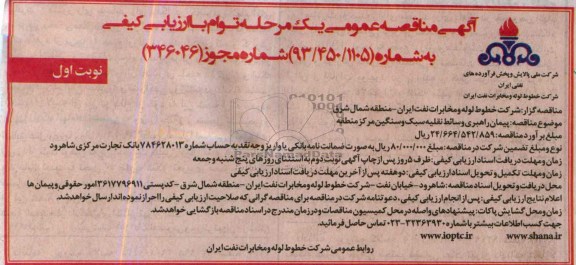 آگهی مناقصه عمومی یک مرحله توام با ارزیابی کیفی
به شماره (۹۳/۴۵۰/۱۱۰۵) شماره مجوز (۳۴۶۰۴۶)
نوبت اول
شرکت ملی پالایش و پخش فرآورده های
نفتی ایران
شرکت خطوط لوله و مخابرات نفت ایران
مناقصه گزار: شرکت خطوط لوله و مخابرات نفت ایران - منطقه شمال شرق
موضوع مناقصه: پیمان راهبری وسائط نقلیه سبک و سنگین مرکز منطقه
مبلغ برآورد مناقصه: ۲۴/۶۶۴/۵۴۲/۸۵۹ ریال
نوع و مبلغ تضمین شرکت در مناقصه: مبلغ ۸۰/۰۰۰/۰۰۰ ریال به صورت ضمانت نامه بانکی یا واریز وجه نقد به حساب شماره ۷۸۴۶۲۸۰۱۳ بانک تجارت مرکزی شاهرود
زمان و مهلت دریافت اسناد ارزیابی کیفی: ظرف ۵ روز پس از چاپ آگهی نوبت دوم به استثنای روزهای پنج شنبه و جمعه
زمان و مهلت تکمیل و تحویل اسناد ارزیابی کیفی: دو هفته پس از آخرین مهلت دریافت اسناد ارزیابی کیفی
محل دریافت و تحویل اسناد مناقصه: شاهرود - خیابان نفت - شرکت خطوط لوله و مخابرات نفت ایران - منطقه شمال شرق - کدپستی ۳۶۱۷۷۹۶۹۱۱ امور حقوقی و پیمان ها
اعلام نتایج ارزیابی کیفی: پس از انجام ارزیابی کیفی، دعوتنامه شرکت در مناقصه برای مناقصه گرانی که صلاحیت ارزیابی کیفی را احراز نموده اند ارسال خواهد شد.
زمان و محل گشایش پاکات: پیشنهادهای واصله در محل کمیسیون مناقصات و در زمان مندرج در اسناد مناقصه بازگشایی خواهد شد.
جهت کسب اطلاعات بیشتر با شماره ۳۲۳۶۳۹۳۰-۰۲۳ تماس حاصل فرمائید.
www.shana.ir www.ioptc.ir
روابط عمومی شرکت خطوط لوله و مخابرات نفت ایران